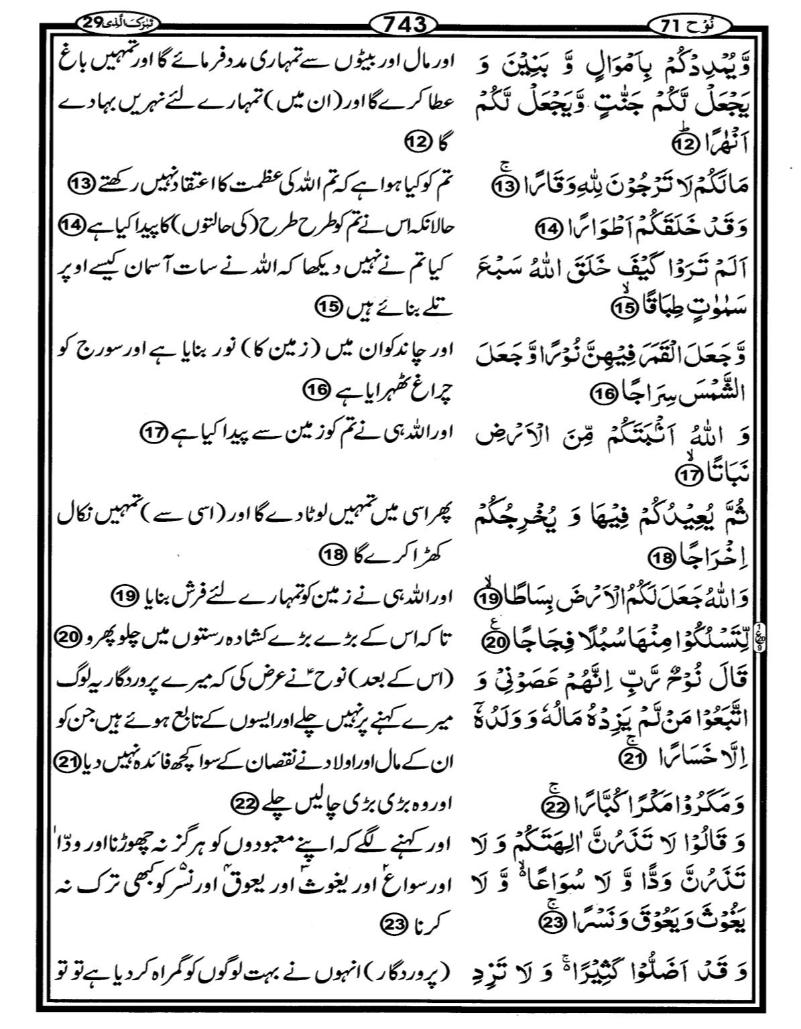 نُوْح 71
743
تَبٰرَكَ الَّذِیْ 29
وَّیُمْدِدْكُمْ بِاَمْوَالٍ وَّ بَنِیْنَ وَ
یَجْعَلْ لَّكُمْ جَنّٰتٍ وَّیَجْعَلْ لَّكُمْ
اَنْهٰرًاؕ ⑫
مَالَكُمْ لَا تَرْجُوْنَ لِلّٰهِ وَقَارًاۚ ⑬
وَ قَدْ خَلَقَكُمْ اَطْوَارًا ⑭
اَلَمْ تَرَوْا كَیْفَ خَلَقَ اللّٰهُ سَبْعَ
سَمٰوٰتٍ طِبَاقًاۙ ⑮
وَّ جَعَلَ الْقَمَرَ فِیْهِنَّ نُوْرًا وَّ جَعَلَ
الشَّمْسَ سِرَاجًا ⑯
وَ اللّٰهُ اَنْۢبَتَكُمْ مِّنَ الْاَرْضِ
نَبَاتًاۙ ⑰
ثُمَّ یُعِیْدُكُمْ فِیْهَا وَ یُخْرِجُكُمْ
اِخْرَاجًا ⑱
وَاللّٰهُ جَعَلَ لَكُمُ الْاَرْضَ بِسَاطًاۙ ⑲
لِّتَسْلُكُوْا مِنْهَا سُبُلًا فِجَاجًا۠ ⑳
قَالَ نُوْحٌ رَّبِّ اِنَّهُمْ عَصَوْنِیْ وَ
اتَّبَعُوْا مَنْ لَّمْ یَزِدْهُ مَالُهٗ وَ وَلَدُهٗۤ
اِلَّا خَسَارًاۚ ㉑
وَ مَكَرُوْا مَكْرًا كُبَّارًاۚ ㉒
وَ قَالُوْا لَا تَذَرُنَّ اٰلِهَتَكُمْ وَ لَا
تَذَرُنَّ وَدًّا وَّ لَا سُوَاعًا۬ۙ وَّ لَا
یَغُوْثَ وَ یَعُوْقَ وَ نَسْرًاۚ ㉓
وَ قَدْ اَضَلُّوْا كَثِیْرًا۬ۚ وَ لَا تَزِدِ
اور مال اور بیٹوں سے تمہاری مدد فرمائے گا اور تمہیں باغ
عطا کرے گا اور (ان میں) تمہارے لئے نہریں بہا دے
گا ⑫
تم کو کیا ہوا ہے کہ تم اللہ کی عظمت کا اعتقاد نہیں رکھتے ⑬
حالانکہ اس نے تم کو طرح طرح (کی حالتوں) کا پیدا کیا ہے ⑭
کیا تم نے نہیں دیکھا کہ اللہ نے سات آسمان کیسے اوپر
تلے بنائے ہیں ⑮
اور چاند کو ان میں (زمین کا) نور بنایا ہے اور سورج کو
چراغ ٹھہرایا ہے ⑯
اور اللہ ہی نے تم کو زمین سے پیدا کیا ہے ⑰
پھر اسی میں تمہیں لوٹا دے گا اور (اسی سے) تمہیں نکال
کھڑا کرے گا ⑱
اور اللہ ہی نے زمین کو تمہارے لئے فرش بنایا ⑲
تا کہ اس کے بڑے بڑے کشادہ رستوں میں چلو پھرو ⑳
(اس کے بعد) نوحؑ نے عرض کی کہ میرے پروردگار یہ لوگ
میرے کہنے پر نہیں چلے اور ایسوں کے تابع ہوئے ہیں جن کو
ان کے مال اور اولاد نے نقصان کے سوا کچھ فائدہ نہیں دیا ㉑
اور وہ بڑی بڑی چالیں چلے ㉒
اور کہنے لگے کہ اپنے معبودوں کو ہرگز نہ چھوڑنا اور ودّا
اور سواع اور یغوث اور یعوق اور نسر کو کبھی ترک نہ
کرنا ㉓
(پروردگار) انہوں نے بہت لوگوں کو گمراہ کر دیا ہے تو تو